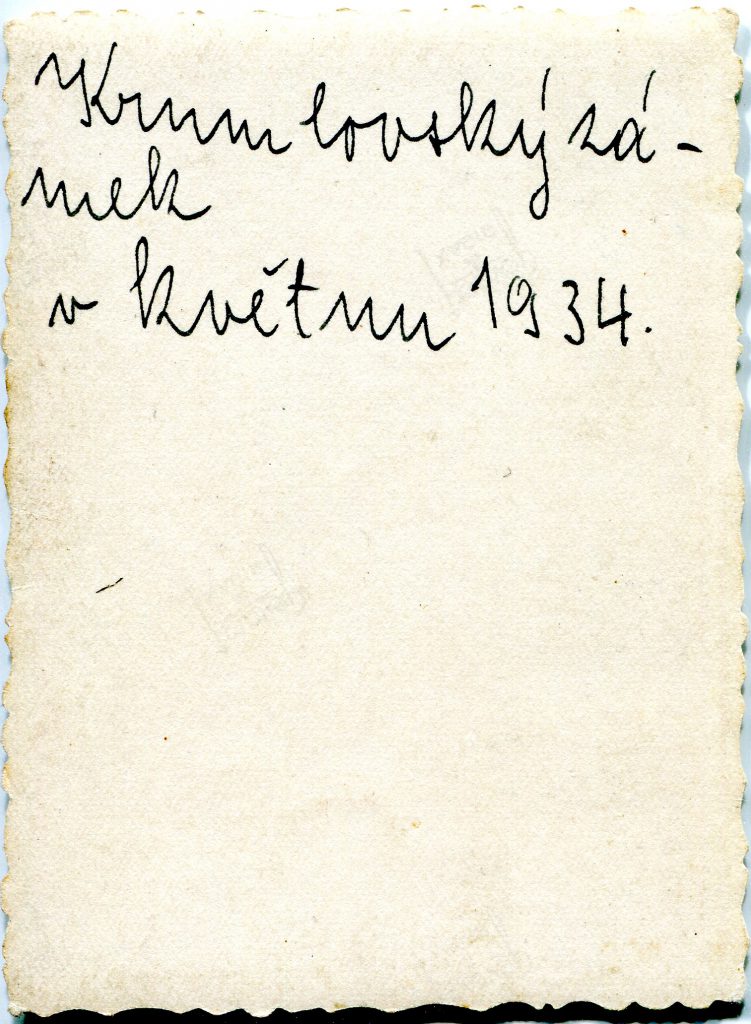 Krumlovský zá-
mek
v květnu 1934.